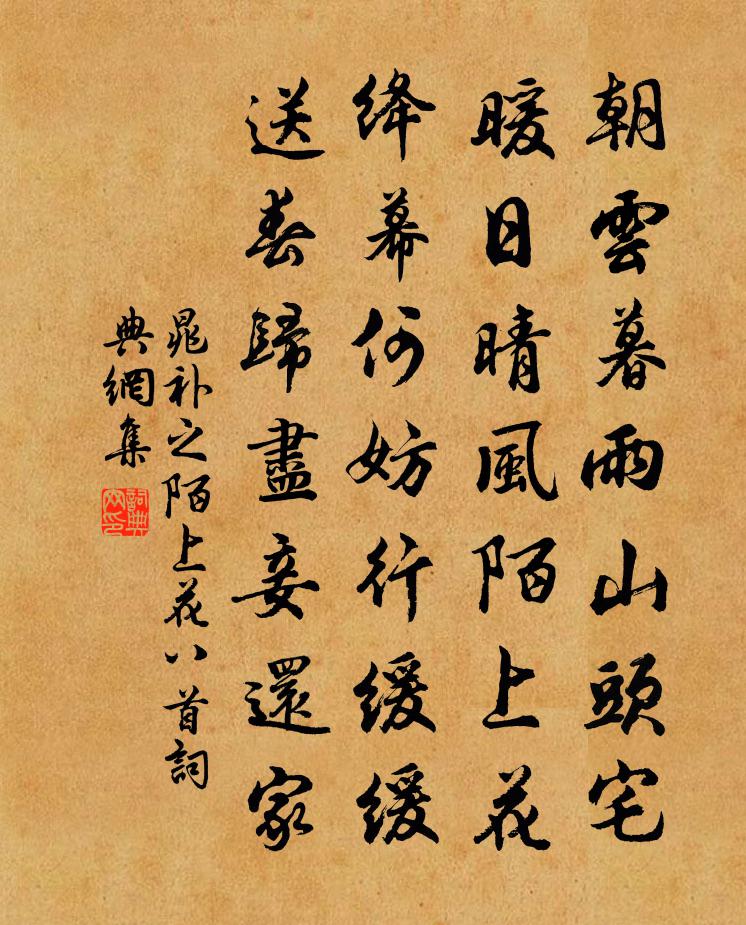 朝雲暮雨山頭宅
暖日晴風陌上花
絳幕何妨行緩緩
送春歸盡妾還家
晁补之陌上花八首詞
典網集
詞典
网印